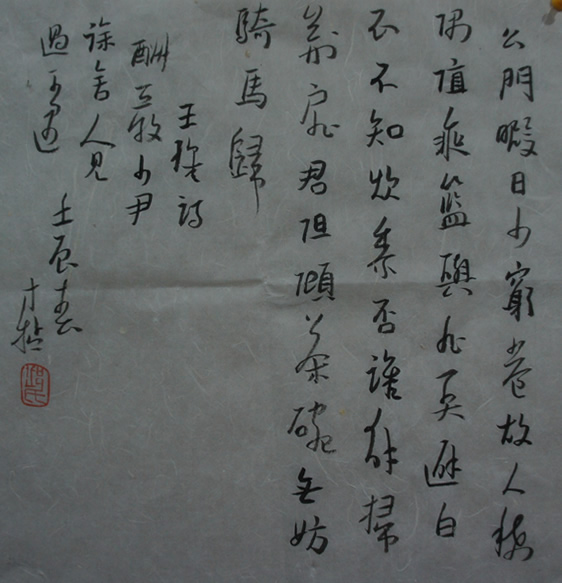 公門暇日少窮巷故人稀
偶值乘籃輿非避白
衣不知炊黍否誰解掃
荆扉君但傾茶碗无妨
騎馬歸
王維詩
酬少尹
徐舍人見
過不遇
壬辰春